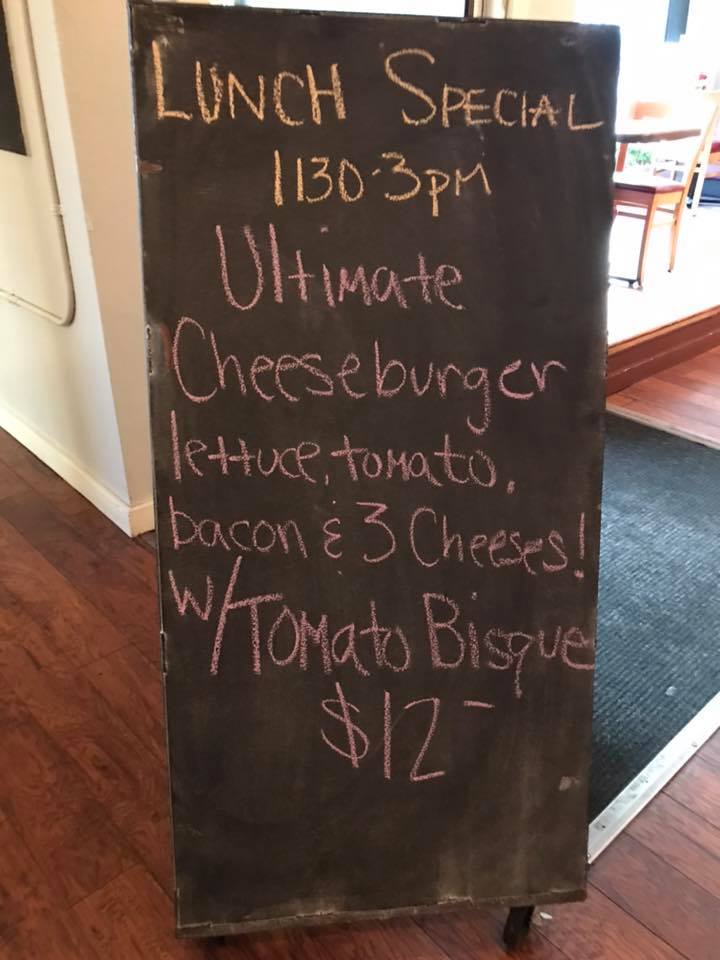 LUNCH SPECIAL
1130-3pM
Ultimate
Cheeseburger
lettuce, tomato,
bacon & 3 Cheeses!
w/Tomato Bisque
$12-